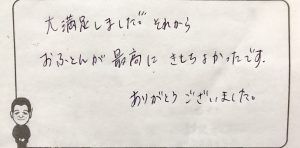 大満足しました。それから
おふとんが最高にきもちよかったです。
ありがとうございました。